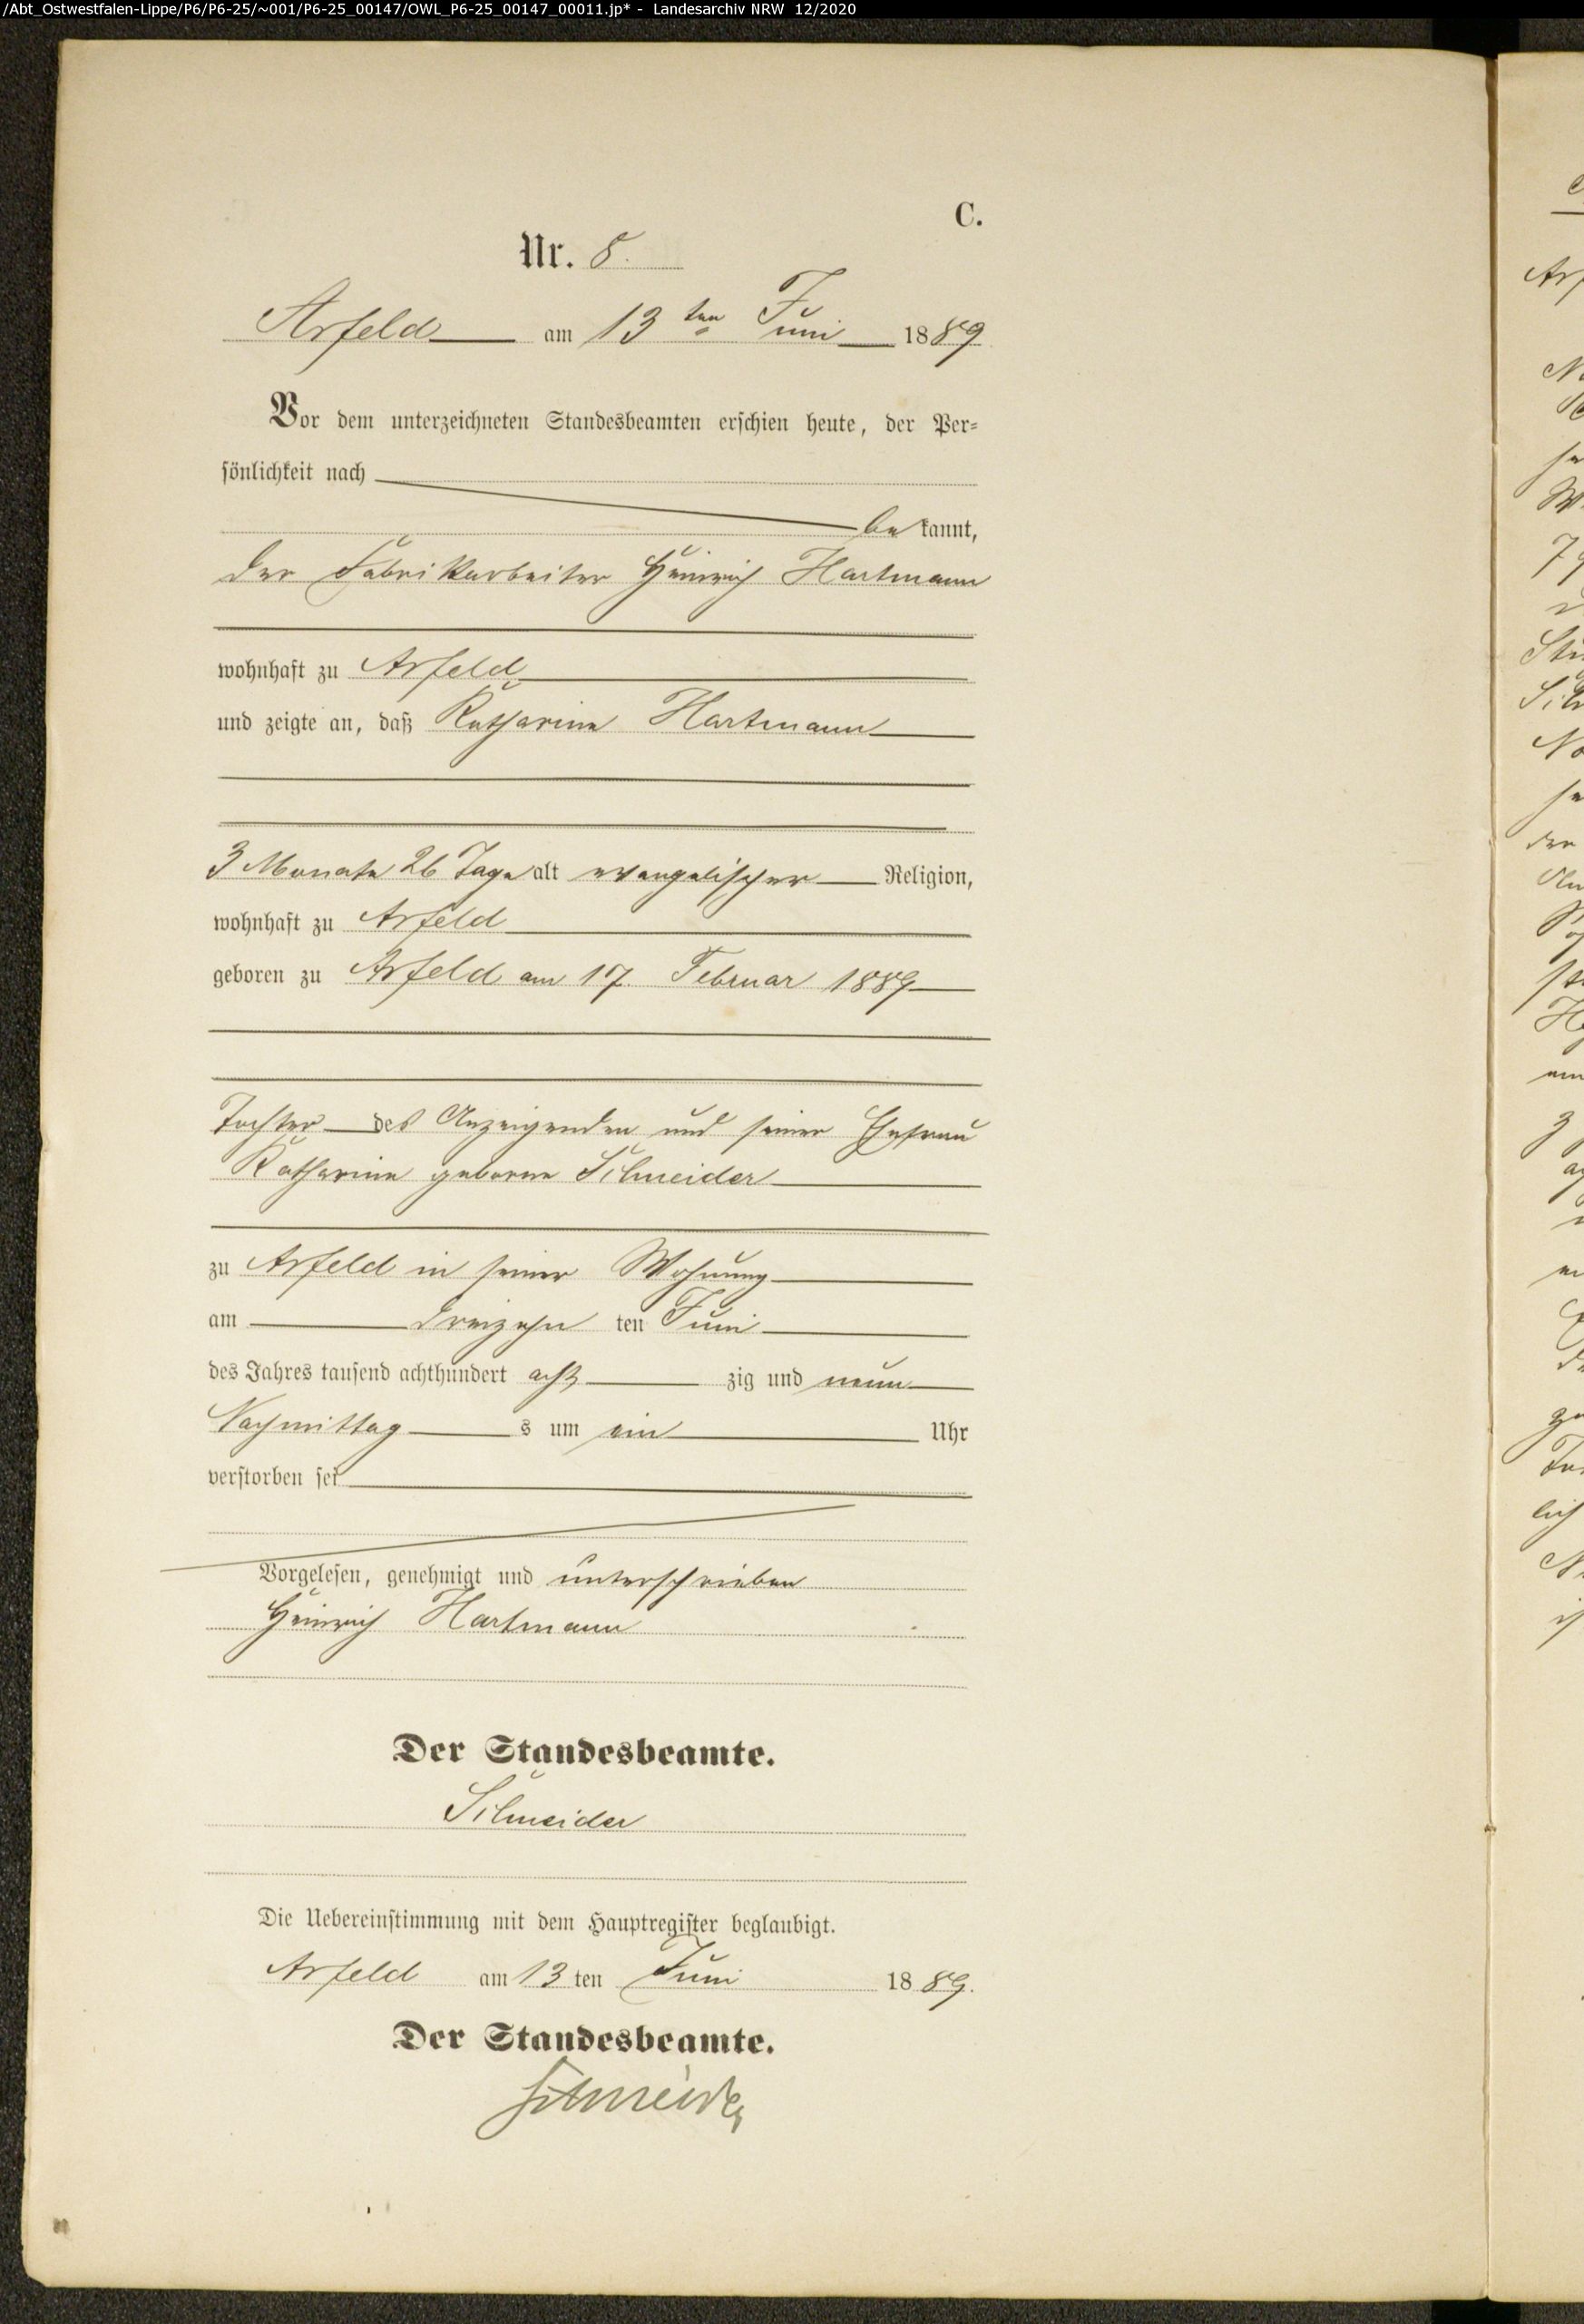 /Abt_Ostwestfalen-Lippe/P6/P6-25/~001/P6-25_00147/OWL_P6-25_00147_00011.jp* - Landesarchiv NRW 12/2020
C.
Nr. 8.
Arfeld am 13 ten Juni 1889
Vor dem unterzeichneten Standesbeamten erschien heute, der Per-
sönlichkeit nach
bekannt,
der Fabrikarbeiter Heinrich Hartmann
wohnhaft zu Arfeld
und zeigte an, daß Katharina Hartmann
3 Monate 26 Tage alt evangelischer Religion,
wohnhaft zu Arfeld
geboren zu Arfeld am 17. Februar 1889
Tochter des Anzeigenden und seiner Ehefrau
Katharina geborne Schneider
zu Arfeld in seiner Wohnung
am dreizehn ten Juni
des Jahres tausend achthundert acht zig und neun
Nachmittag s um ein Uhr
verstorben sei
Vorgelesen, genehmigt und unterschrieben
Heinrich Hartmann
Der Standesbeamte.
Schneider
Die Uebereinstimmung mit dem Hauptregister beglaubigt.
Arfeld am 13 ten Juni 1889.
Der Standesbeamte.
Schneider